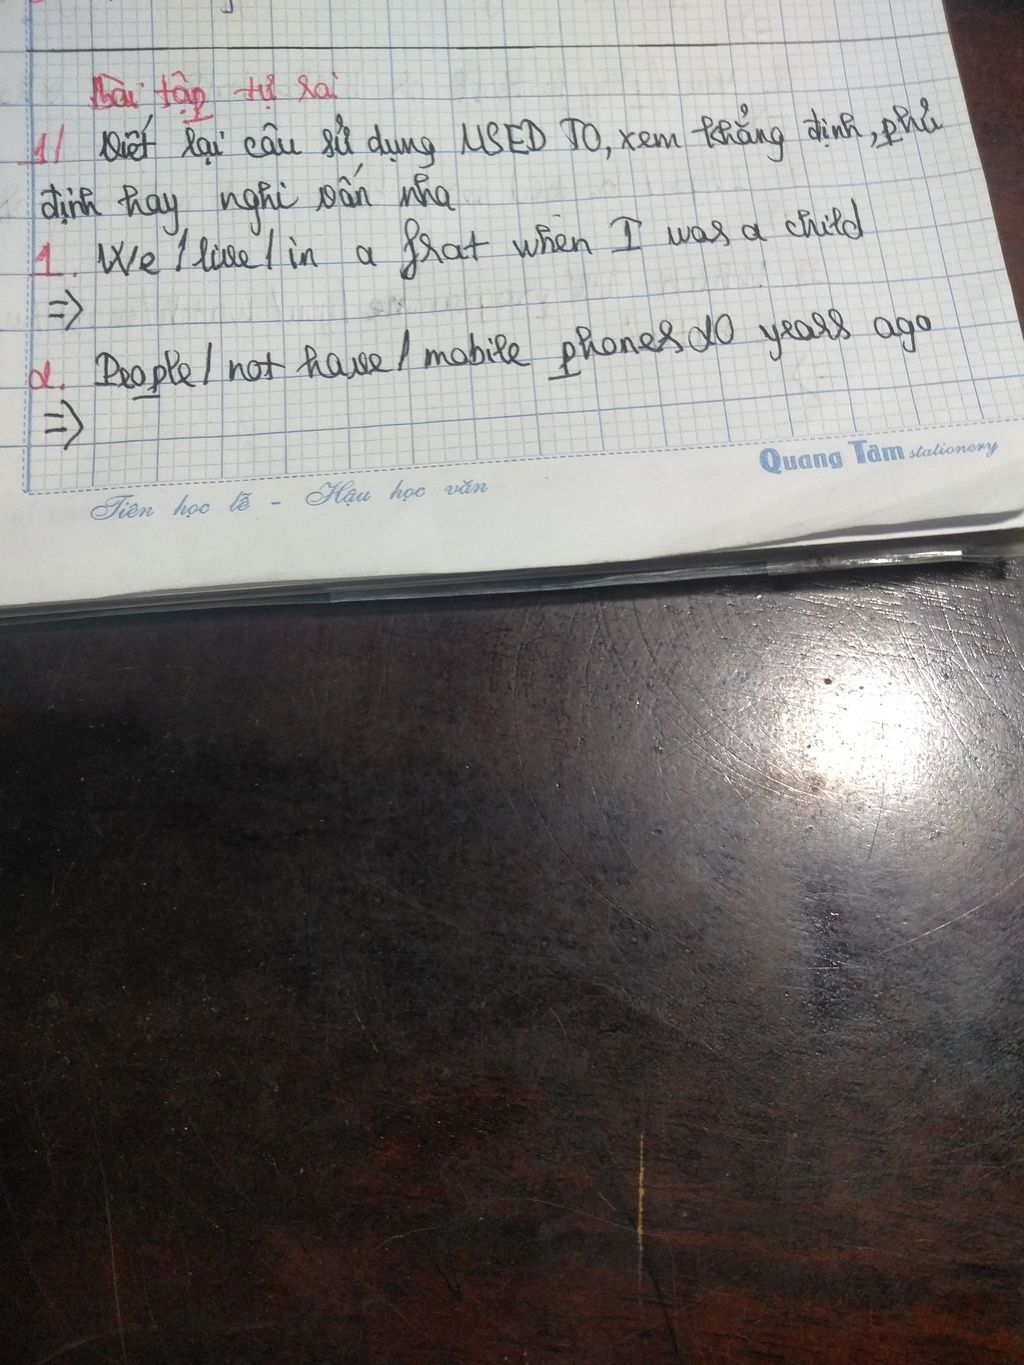 Bài tập tự rai
1/ Viết lại câu sử dụng USED TO, xem khẳng định, phủ
định hay nghi vấn nha
1. We / live / in a frat when I was a child
=>
2. People / not have / mobile phones 20 years ago
=>
Quang Tâm stationery
Tiên học lễ - Hậu học văn